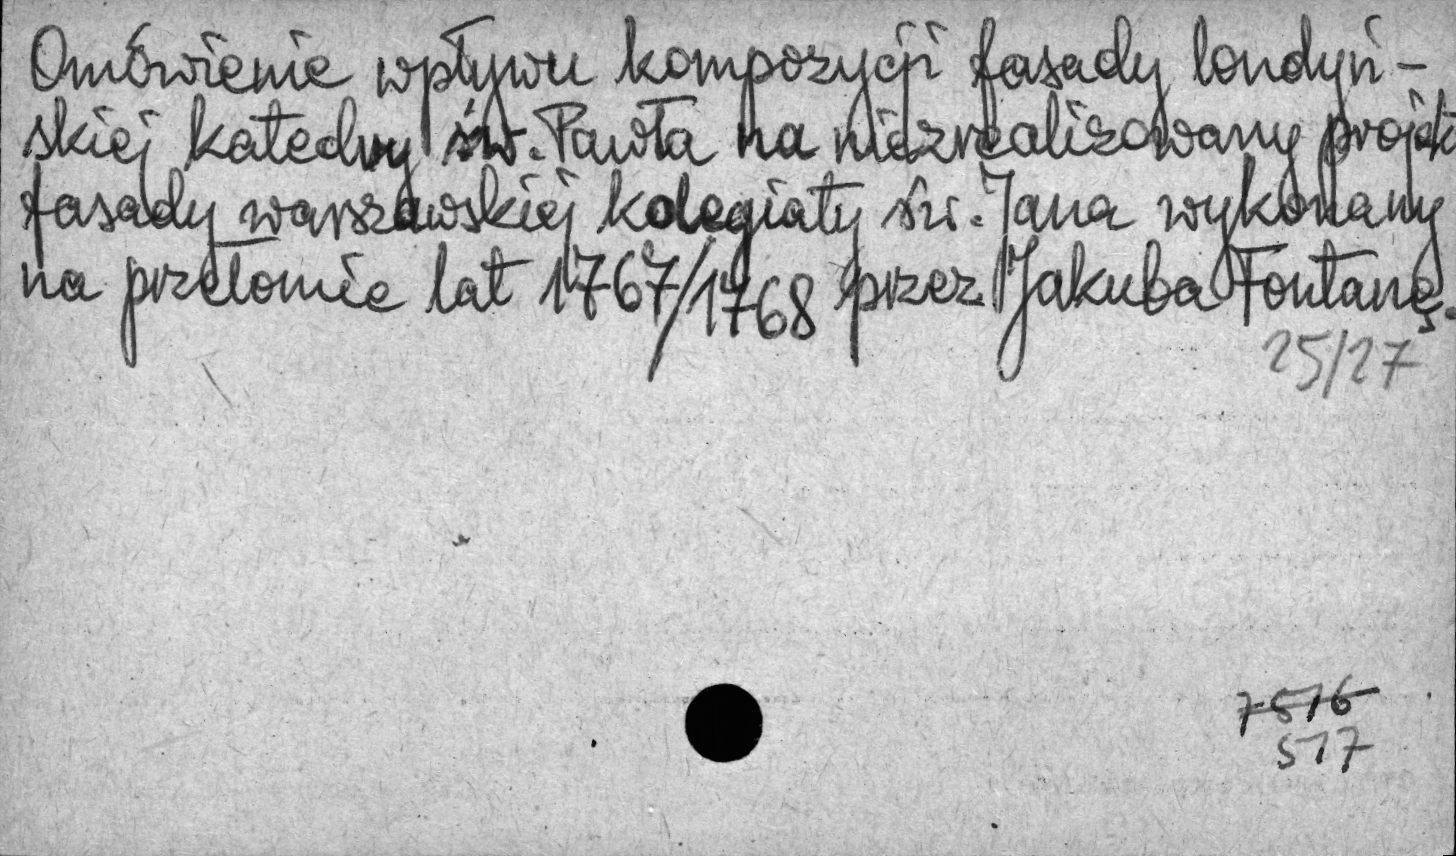 Omówienie wpływu kompozycji fasady londyń-
skiej katedry św. Pawła na niezrealizowany projekt
fasady warszawskiej kolegiaty św. Jana wykonany
na przełomie lat 1767/1768 przez Jakuba Fontanę.
25/27
7516
517